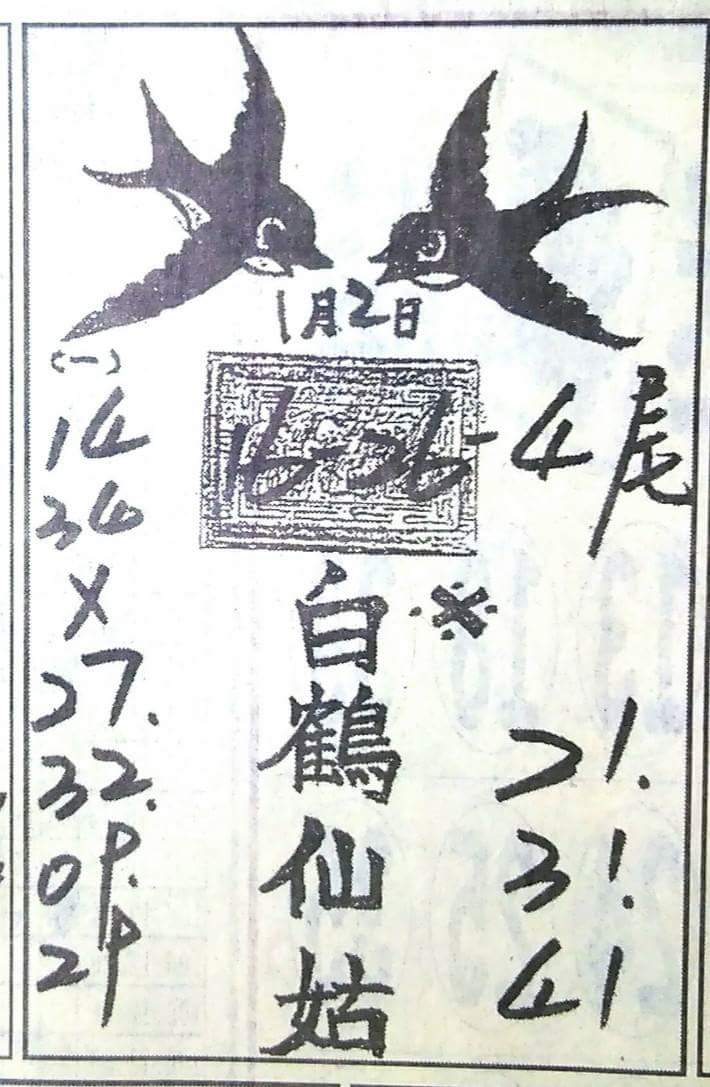 1月2日
(一)
14
34
X
27.
32.
09.
29
16-26-4尾
白鶴仙姑
21.
31.
41